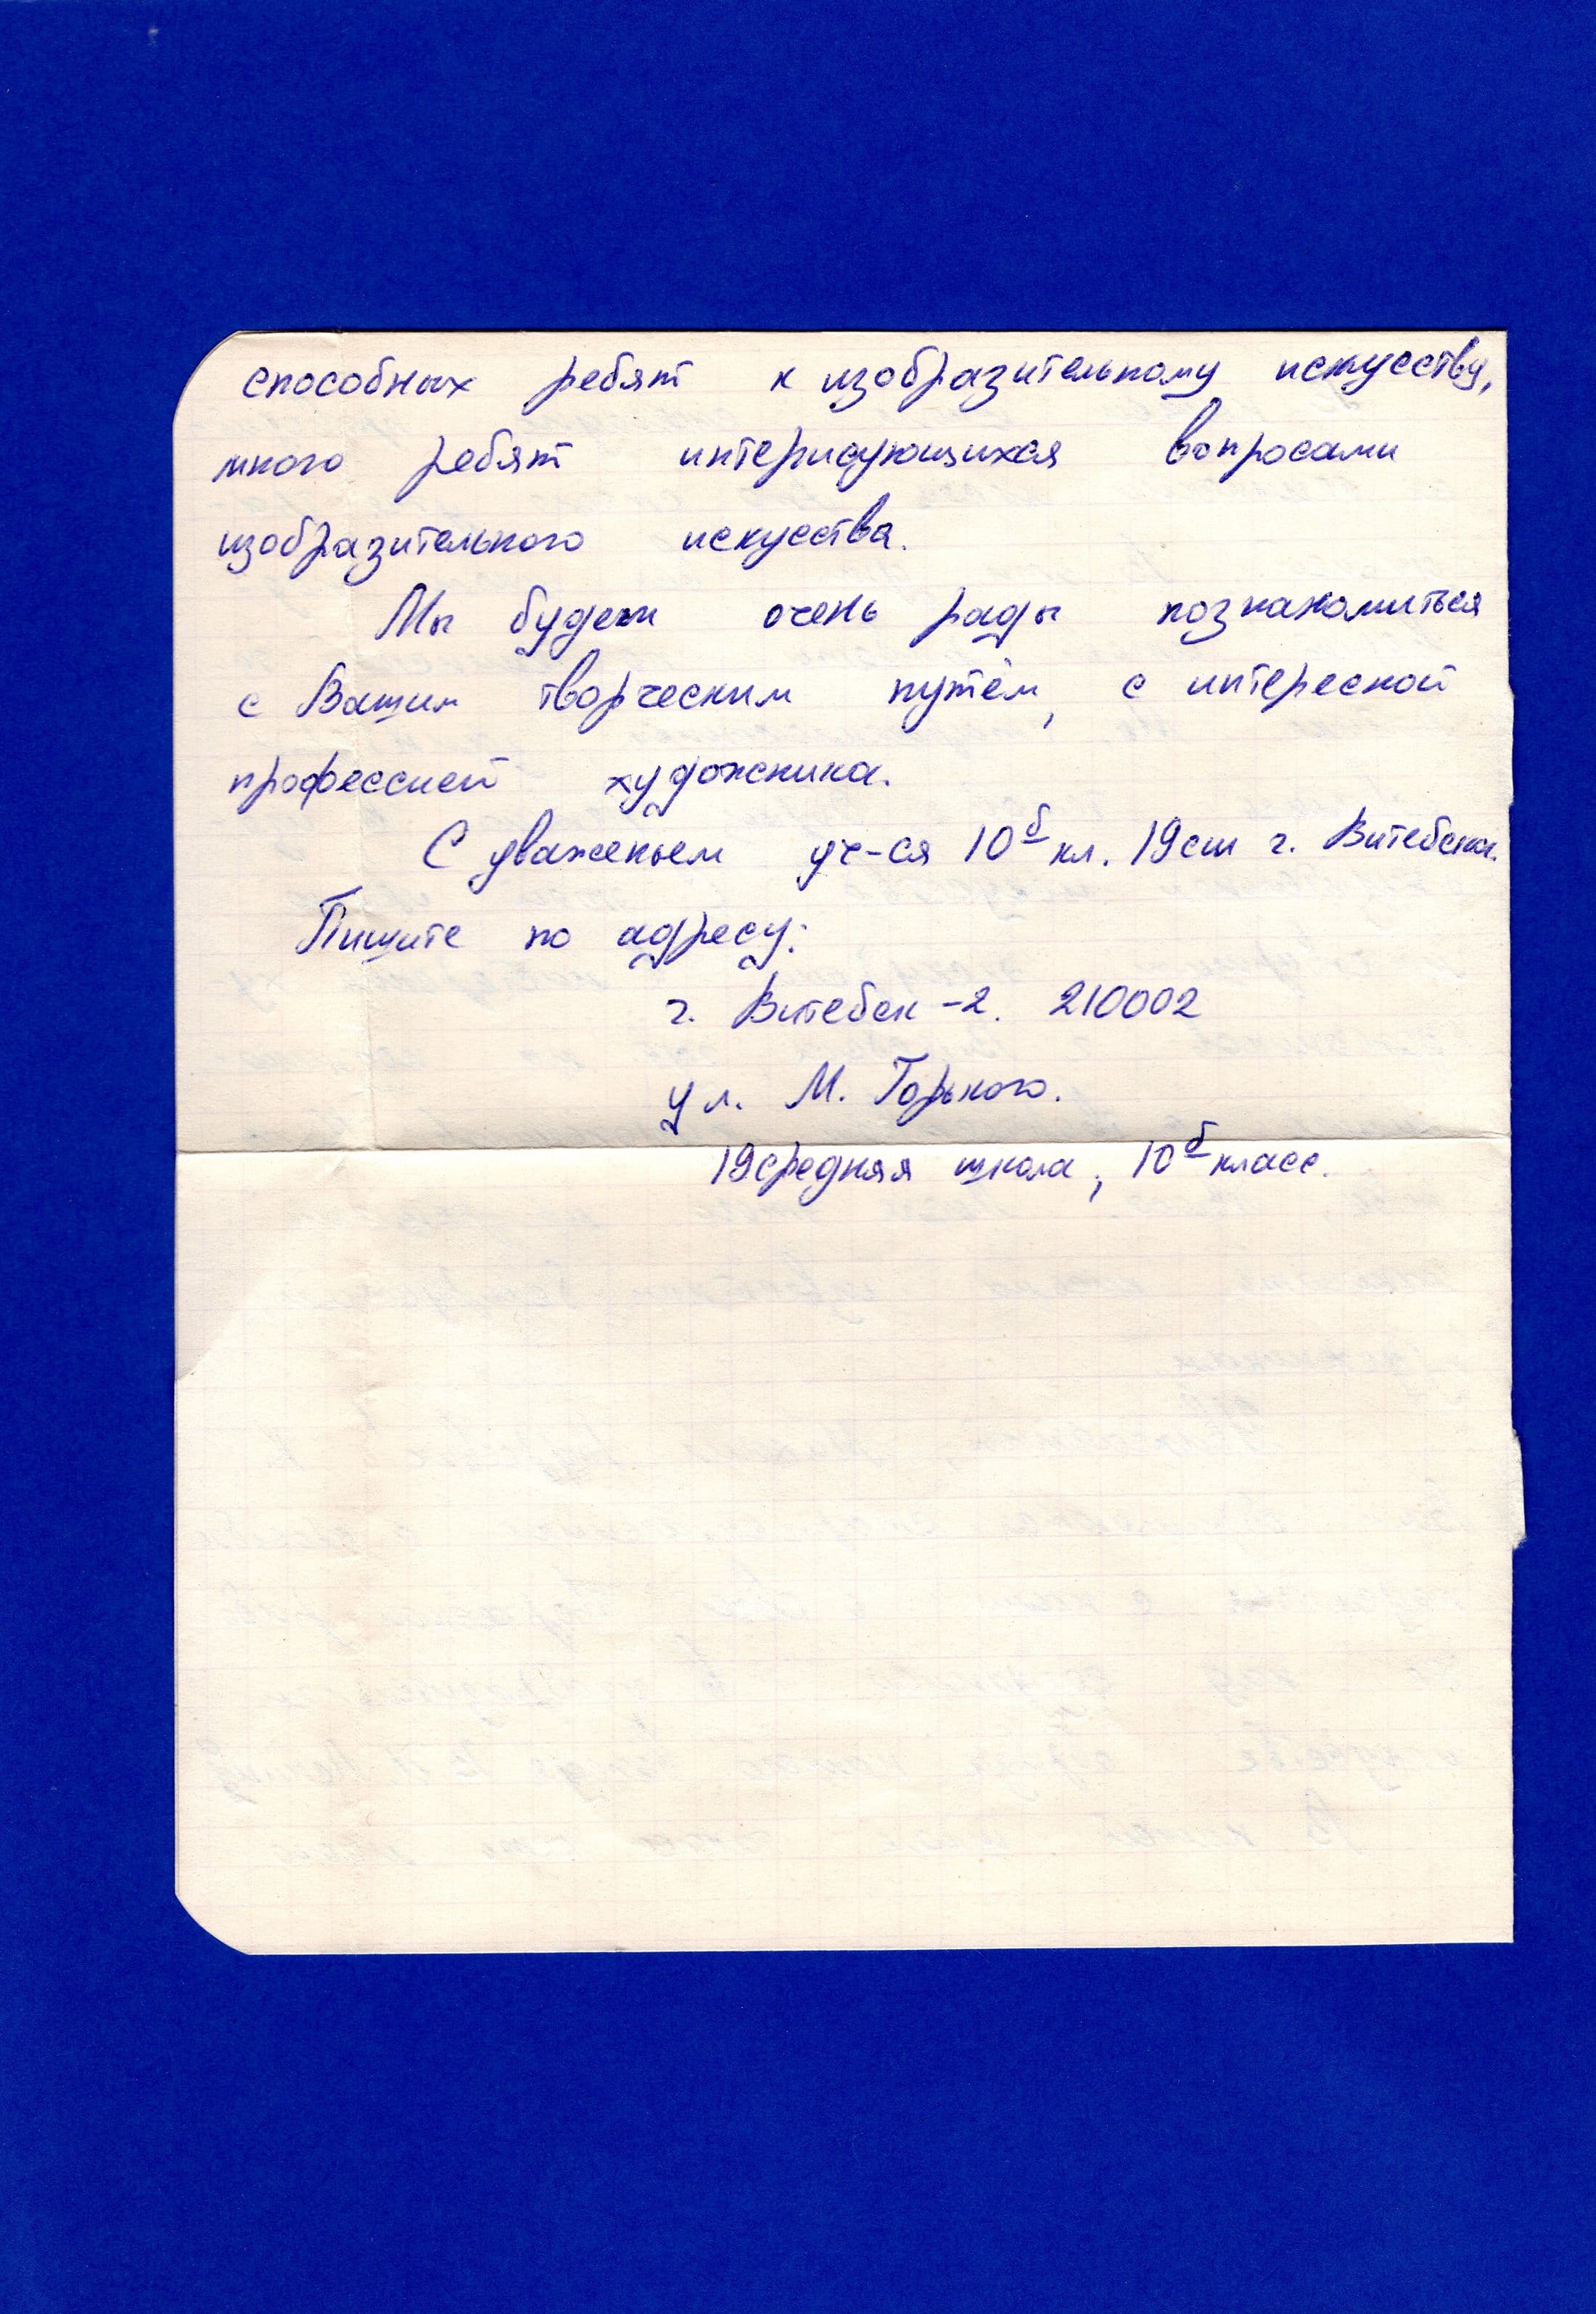 способных ребят к изобразительному искусству,
много ребят интерисующихся вопросами
изобразительного искусства.
Мы будем очень рады познакомиться
с Вашим творческим путём, с интересной
профессией художника.
С уваженьем уч-ся 10б кл. 19сш г. Витебска.
Пишите по адресу:
г. Витебск-2. 210002
ул. М. Горького.
19средняя школа, 10б класс.